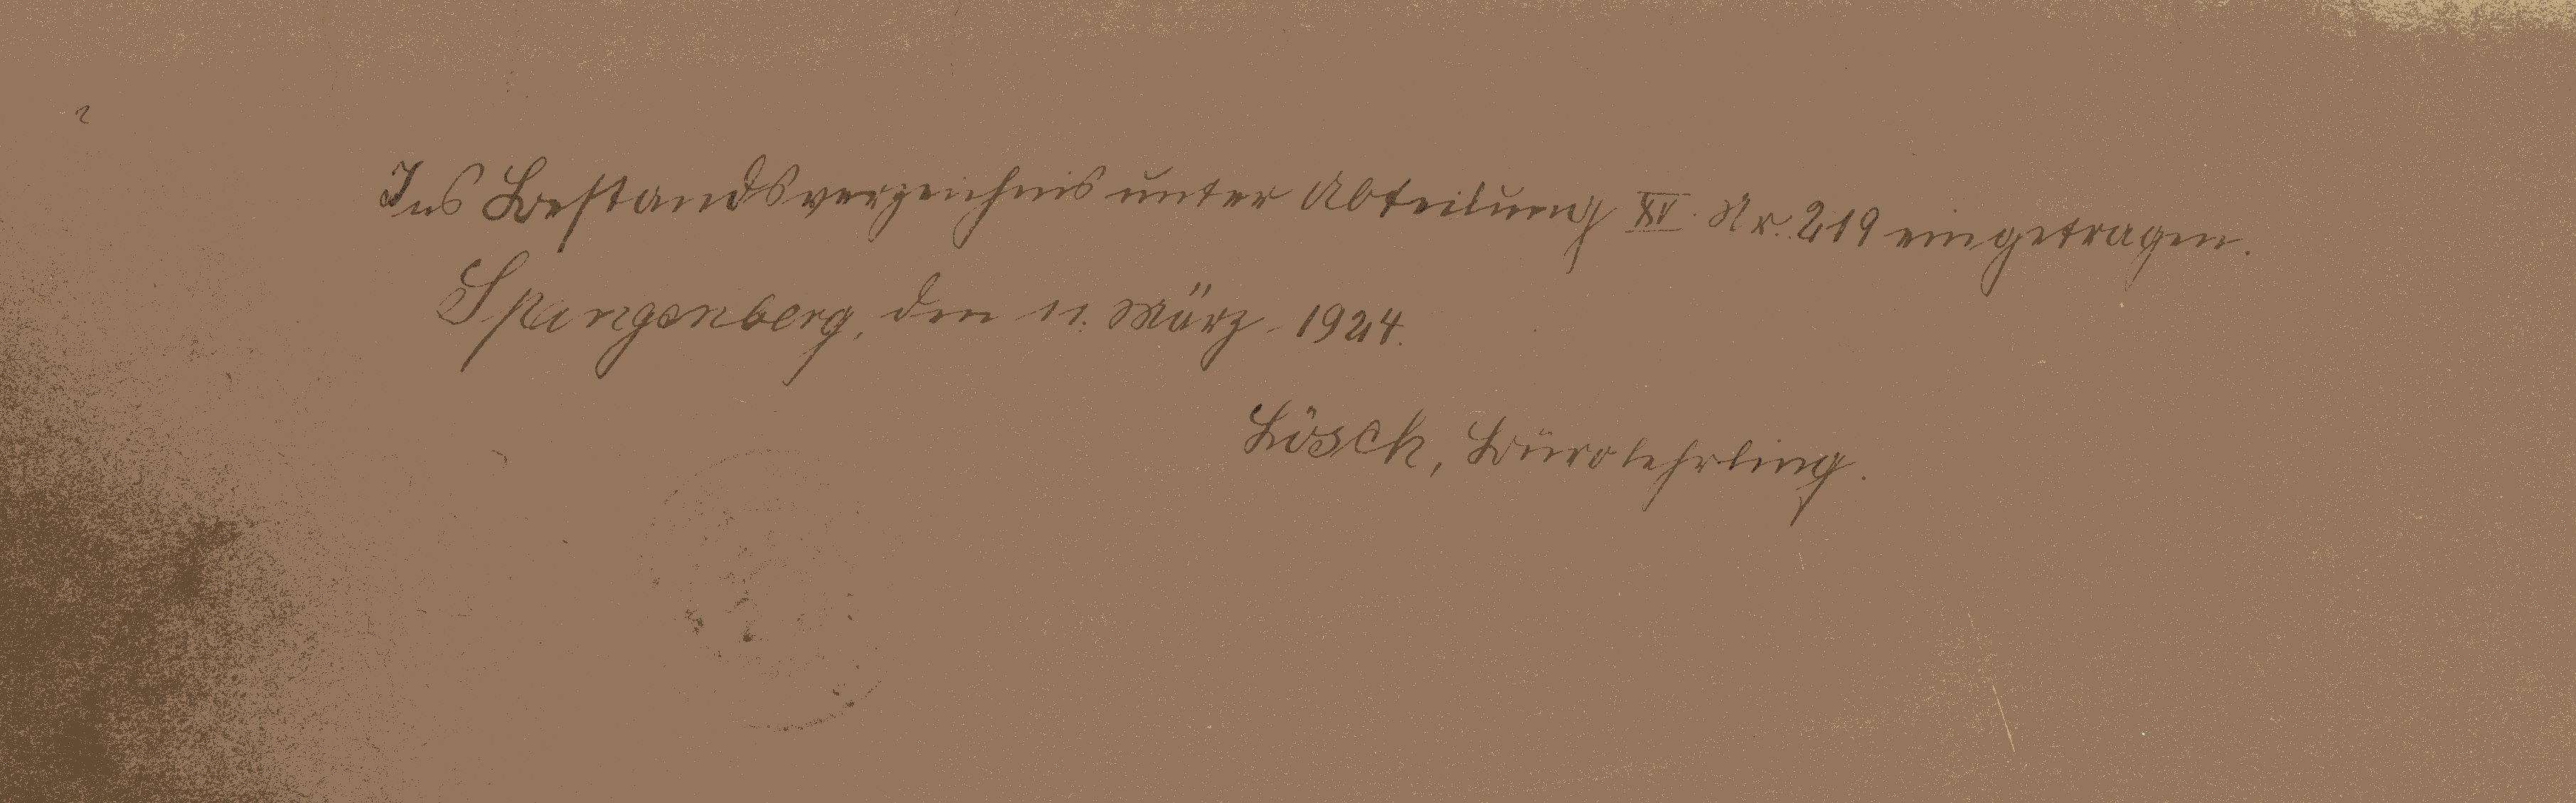 Ins Bestandsverzeichnis unter Abteilung XV. Nr. 219 eingetragen.
Spangenberg, den 11. März 1924.
Lösch, Bürolehrling.